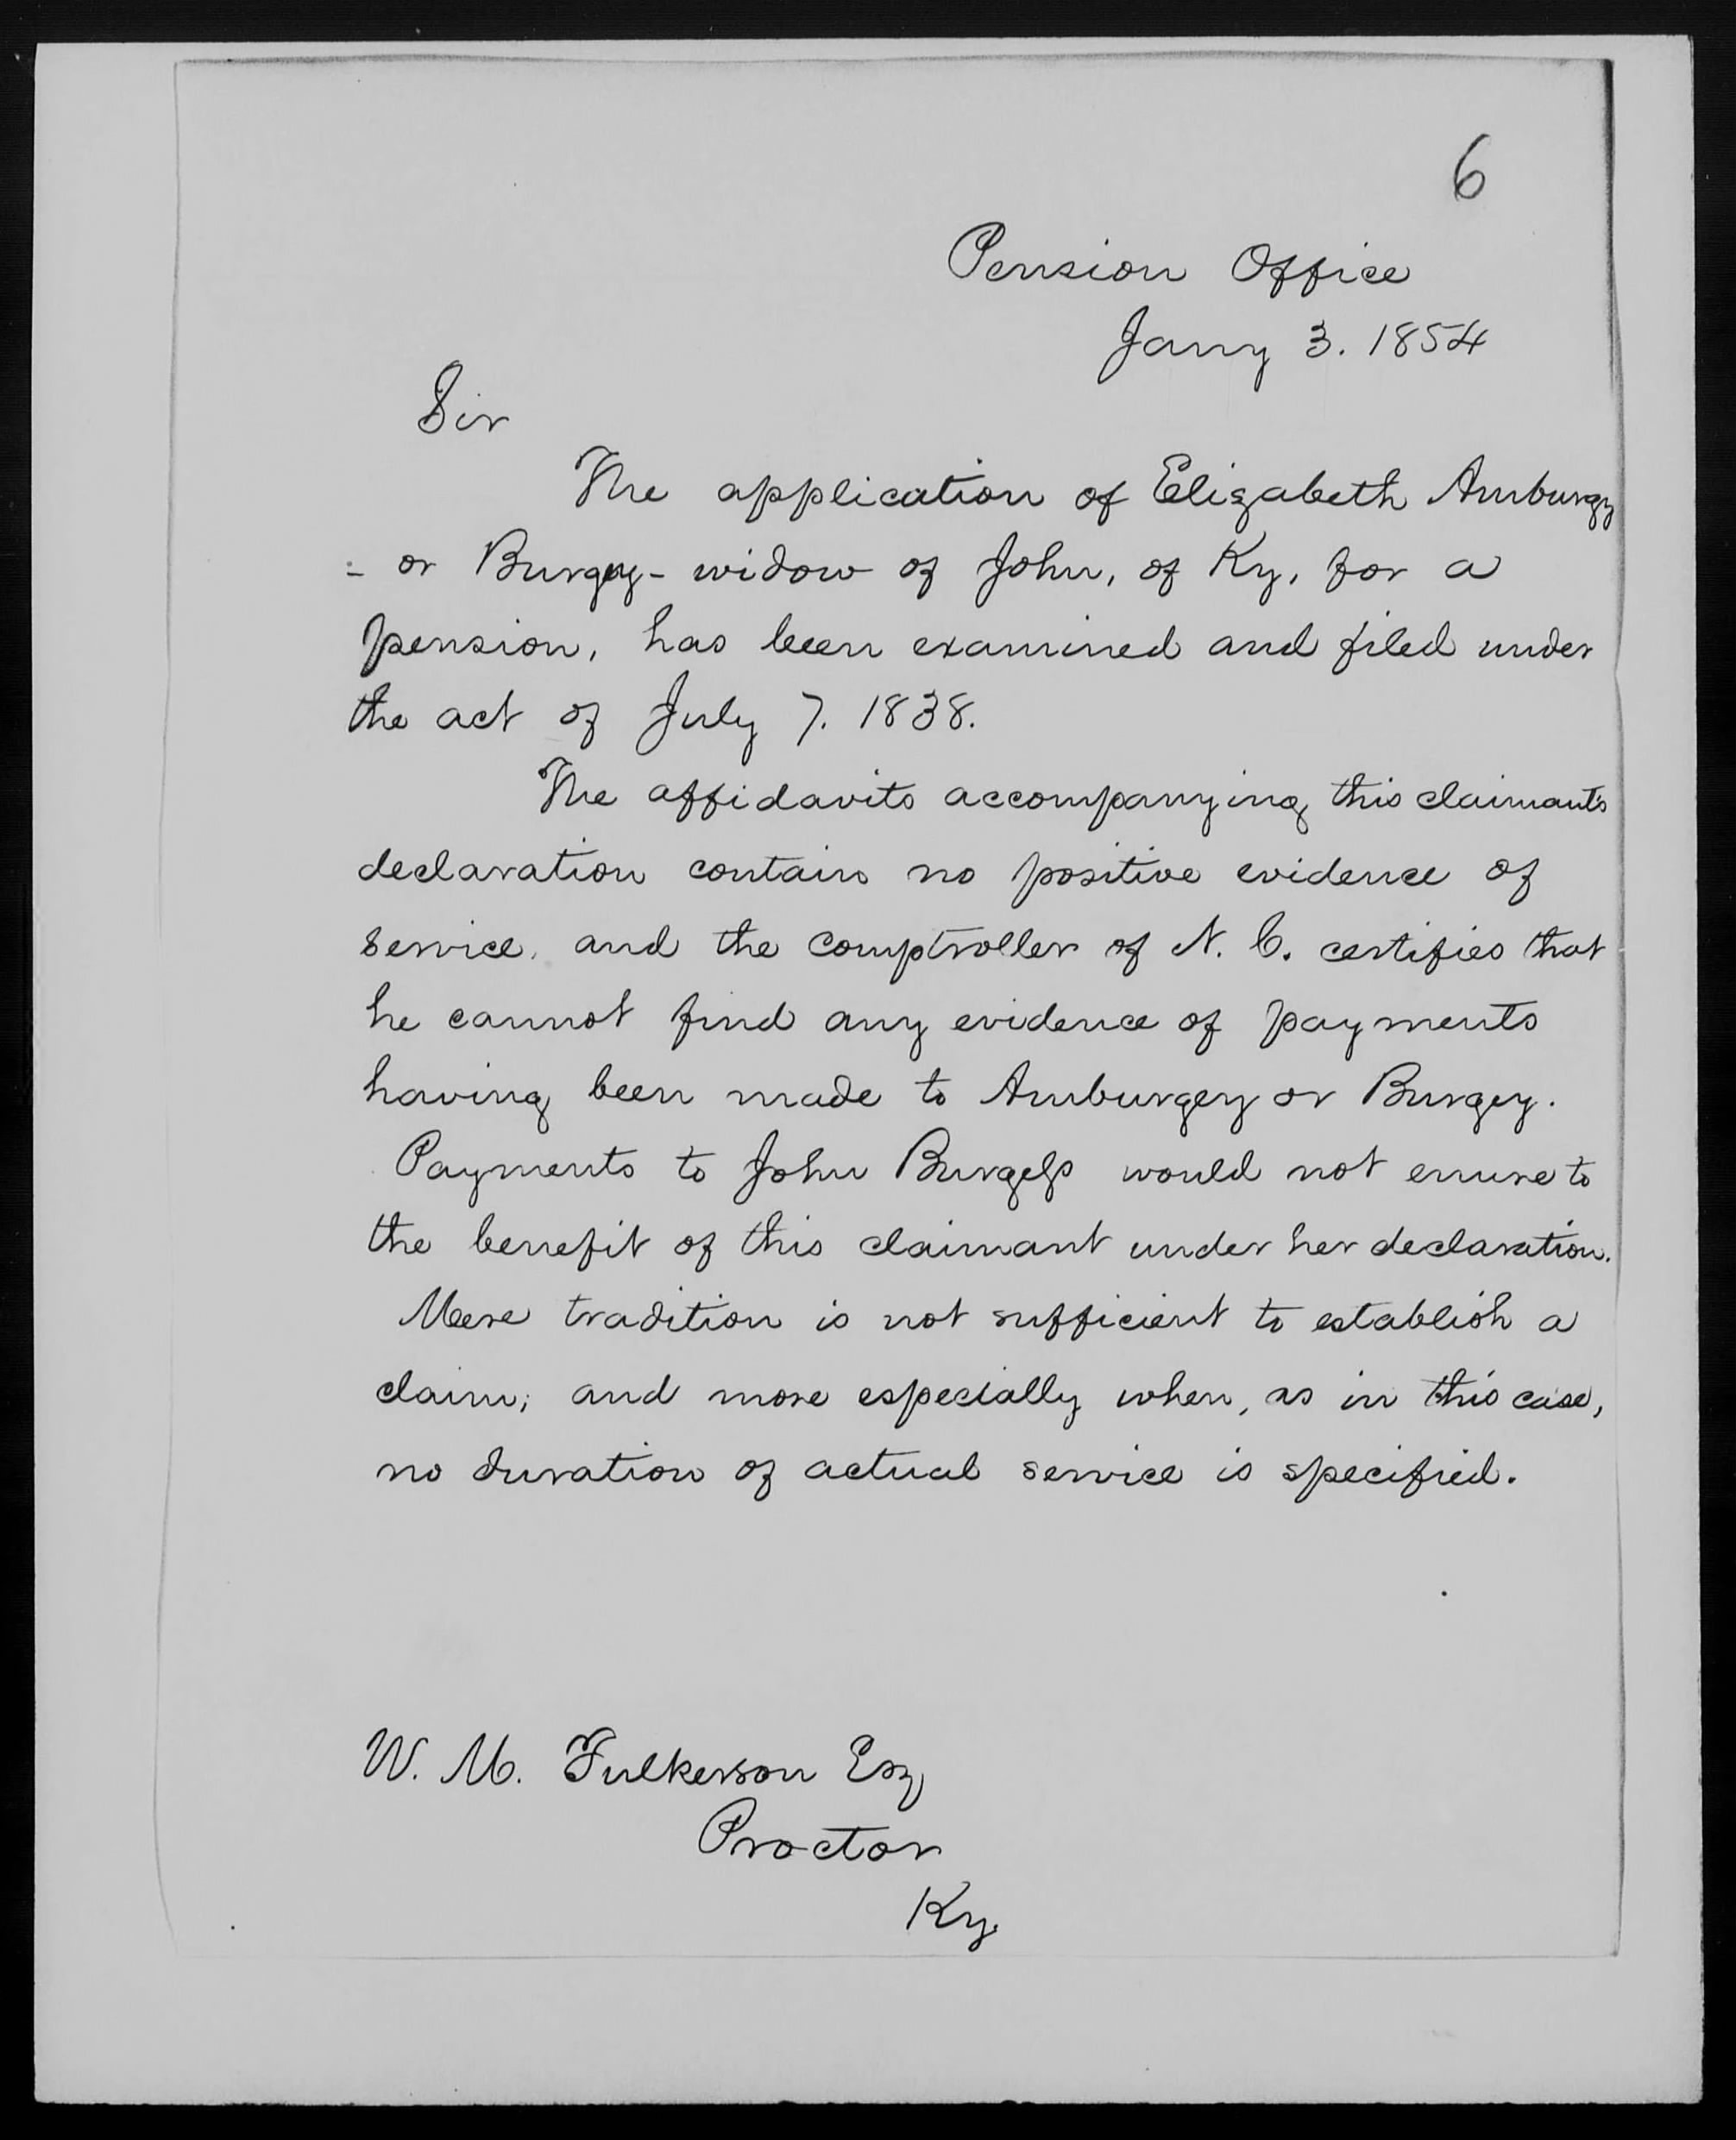 6
Pension Office
Jany 3. 1854
Sir
The application of Elizabeth Amburgy
- or Burgey - widow of John, of Ky, for a
pension, has been examined and filed under
the act of July 7. 1838.
The affidavits accompanying this claimant's
declaration contain no positive evidence of
service, and the comptroller of N. C. certifies that
he cannot find any evidence of payments
having been made to Amburgey or Burgey.
Payments to John Burgess would not enure to
the benefit of this claimant under her declaration.
Mere tradition is not sufficient to establish a
claim; and more especially when, as in this case,
no duration of actual service is specified.
W. M. Fulkerson Esq
Proctor
Ky.